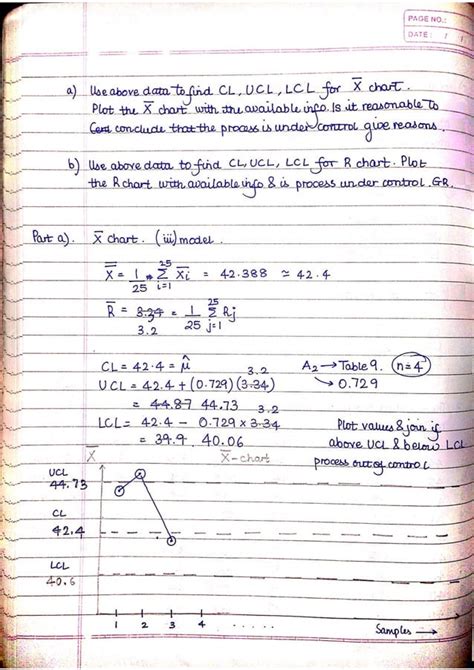 PAGE NO.:
DATE: / /
a) Use above data to find CL, UCL, LCL for X̅ chart.
Plot the X̅ chart with the available info. Is it reasonable to
conclude that the process is under control give reasons.
b) Use above data to find CL, UCL, LCL for R chart. Plot
the R chart with available info & is process under control. GR.
Part a). X̅ chart. (iii) model.
X̿ = 1/25 * 25 Σ i=1 X̅i = 42.388 ≃ 42.4
R̅ = 3.34 = 1/25 25 Σ j=1 Rj
3.2
CL = 42.4 = μ̂ 3.2 A2 → Table 9. n=4
UCL = 42.4 + (0.729)(3.34) → 0.729
= 44.87 44.73 3.2
LCL = 42.4 - 0.729 x 3.34 Plot values & join if
= 39.9 40.06 above UCL & below LCL
X̅ X̅-chart process out of control
UCL
44.73
CL
42.4
LCL
40.6
1 2 3 4 .....
Samples →